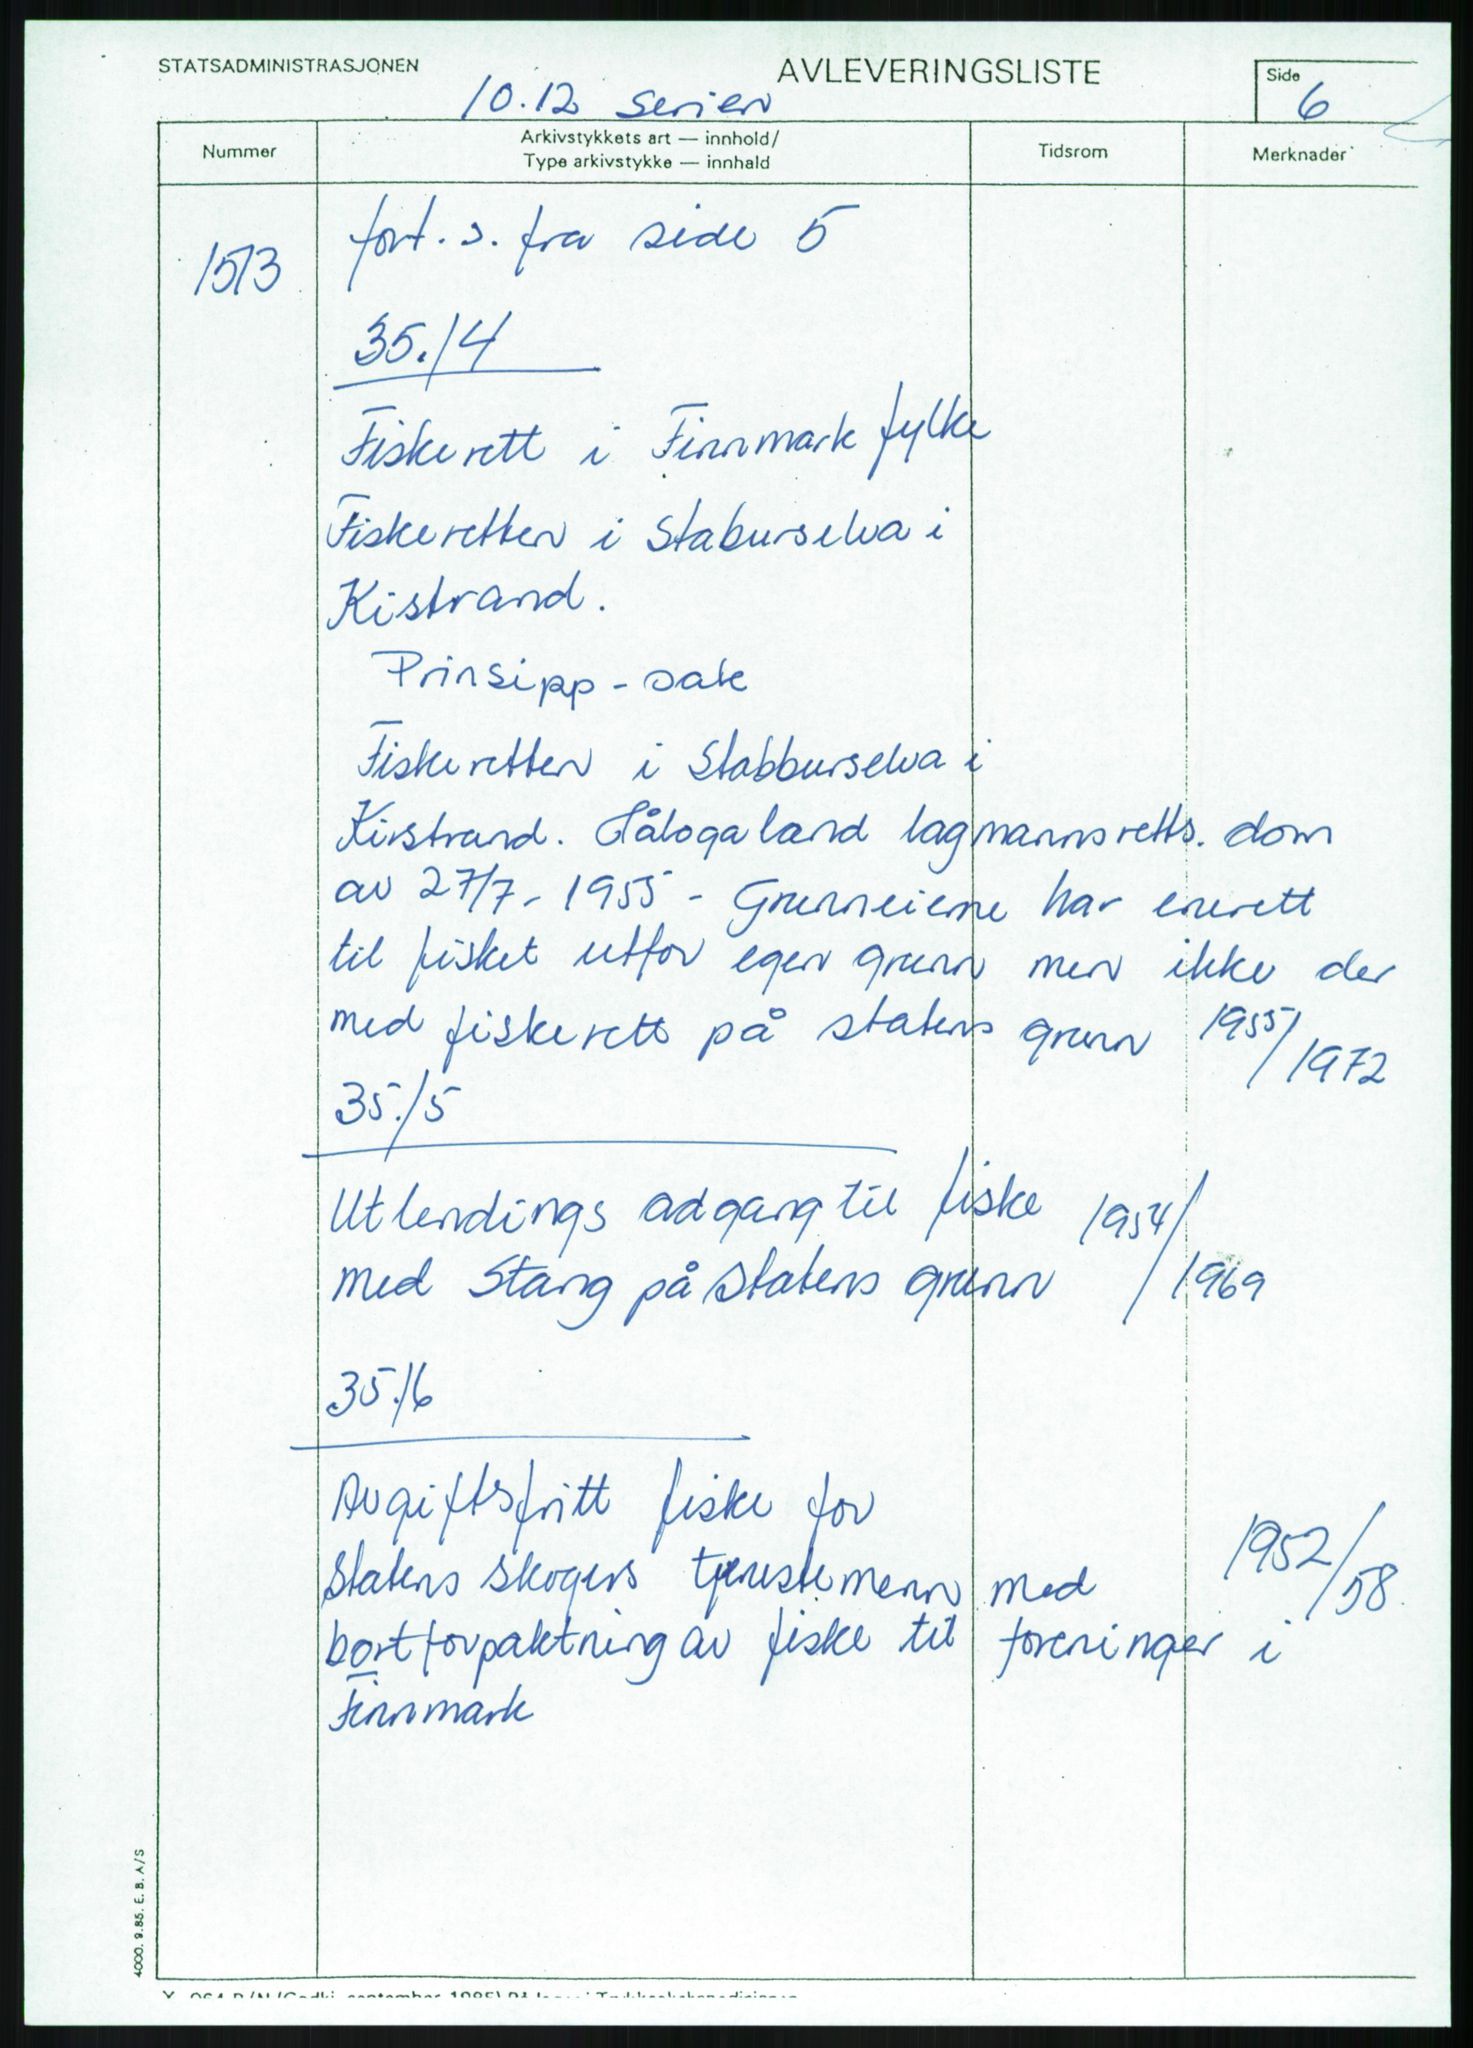 STATSADMINISTRASJONEN
AVLEVERINGSLISTE
Side
6
10.12 serien
Nummer
Arkivstykkets art — innhold/
Type arkivstykke — innhald
Tidsrom
Merknader
1513
fort. s. fra side 5
35./4
Fiskerett i Finnmark fylke
Fiskeretten i Staburselva i
Kistrand.
Prinsipp - sak
Fiskeretten i Stabburselva i
Kistrand. Hålogaland lagmannsretts. dom
av 27/7- 1955 - Grunneierne har enerett
til fisket utfor egen grunn men ikke der
med fiskerett på statens grunn 1955/
1972
35./5
Utlendings adgang til fiske 1954/
med Stang på statens grunn /1969
35./6
Avgiftsfritt fiske for
Statens skogers tjenestemenn med 1952/
58
bortforpaktning av fiske til foreninger i
Finnmark
4000. 9.85. E. B. A/S